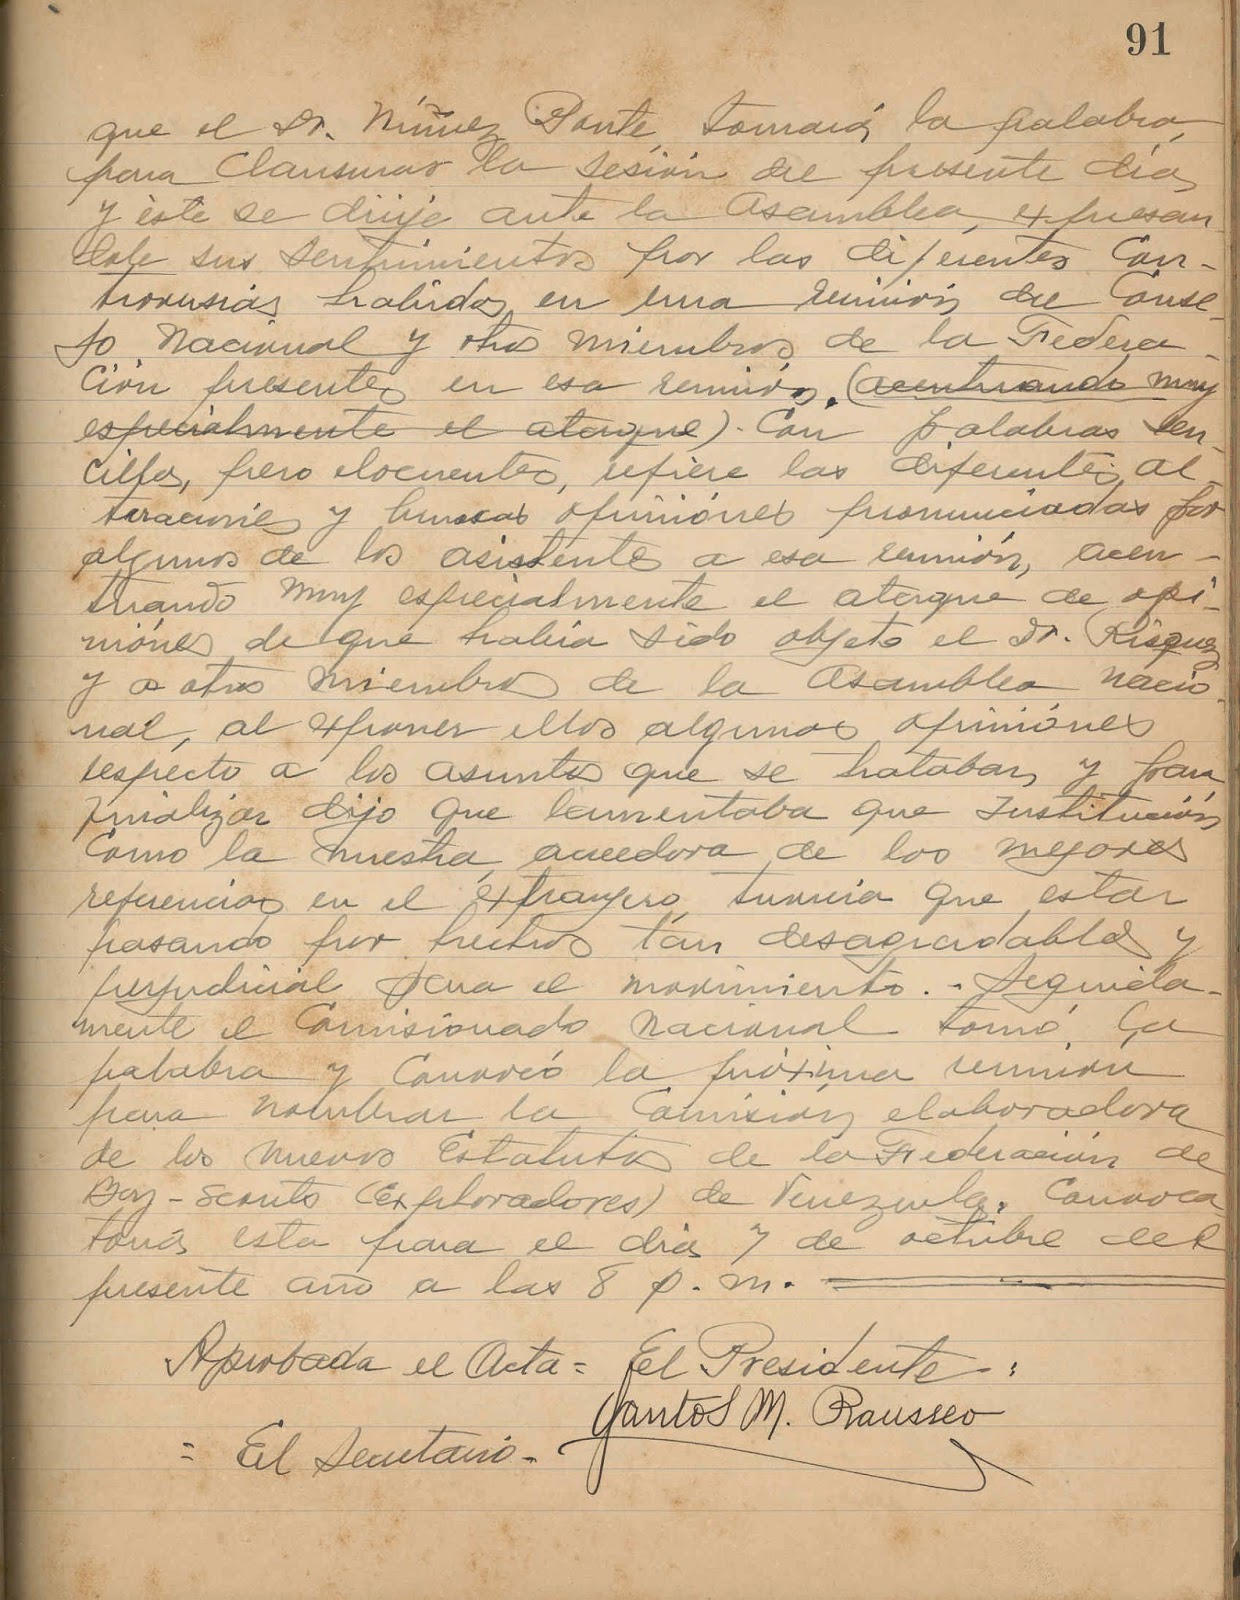 91
que el Dr. Núñez Ponte tomará la palabra,
para Clausurar la sesión del presente día,
y éste se dirije ante la Asamblea, expresan
dole sus sentimientos por las diferentes Con-
troversias habidas en una reunión del Conse-
jo Nacional y otros miembros de la Federa-
ción presentes en esa reunión, (acentuando muy
especialmente el ataque). Con palabras sen-
cillas, pero elocuentes, refiere las diferentes al-
teraciones y opiniónes pronunciadas por
algunos de los asistente a esa reunión, acen-
tuando muy especialmente el ataque de opi-
niónes de que había sido objeto el Dr. Risquez
y a otros miembros de la Asamblea Nacio-
nal, al exponer ellos algunas opiniónes
respecto a los asuntos que se trataban, y para
finalizar dijo que lamentaba que Institución
Como la nuestra, acredora de los mejores
referencias en el extranjero, tuviera que estar
pasando por hechos tán desagradables y
perjudicial para el movimiento. - Seguida-
mente el Comisionado Nacional tomó la
palabra y Convocó la próxima reunión
para nombrar la Comisión elaboradora
de los nuevos Estatutos de la Federación de
Boy-Scouts (Exploradores) de Venezuela. Convoca
toria esta para el día 7 de octubre del
presente año a las 8 p.m.
Aprobada el Acta = El Presidente:
Santos M. Rausseo
= El Secretario -